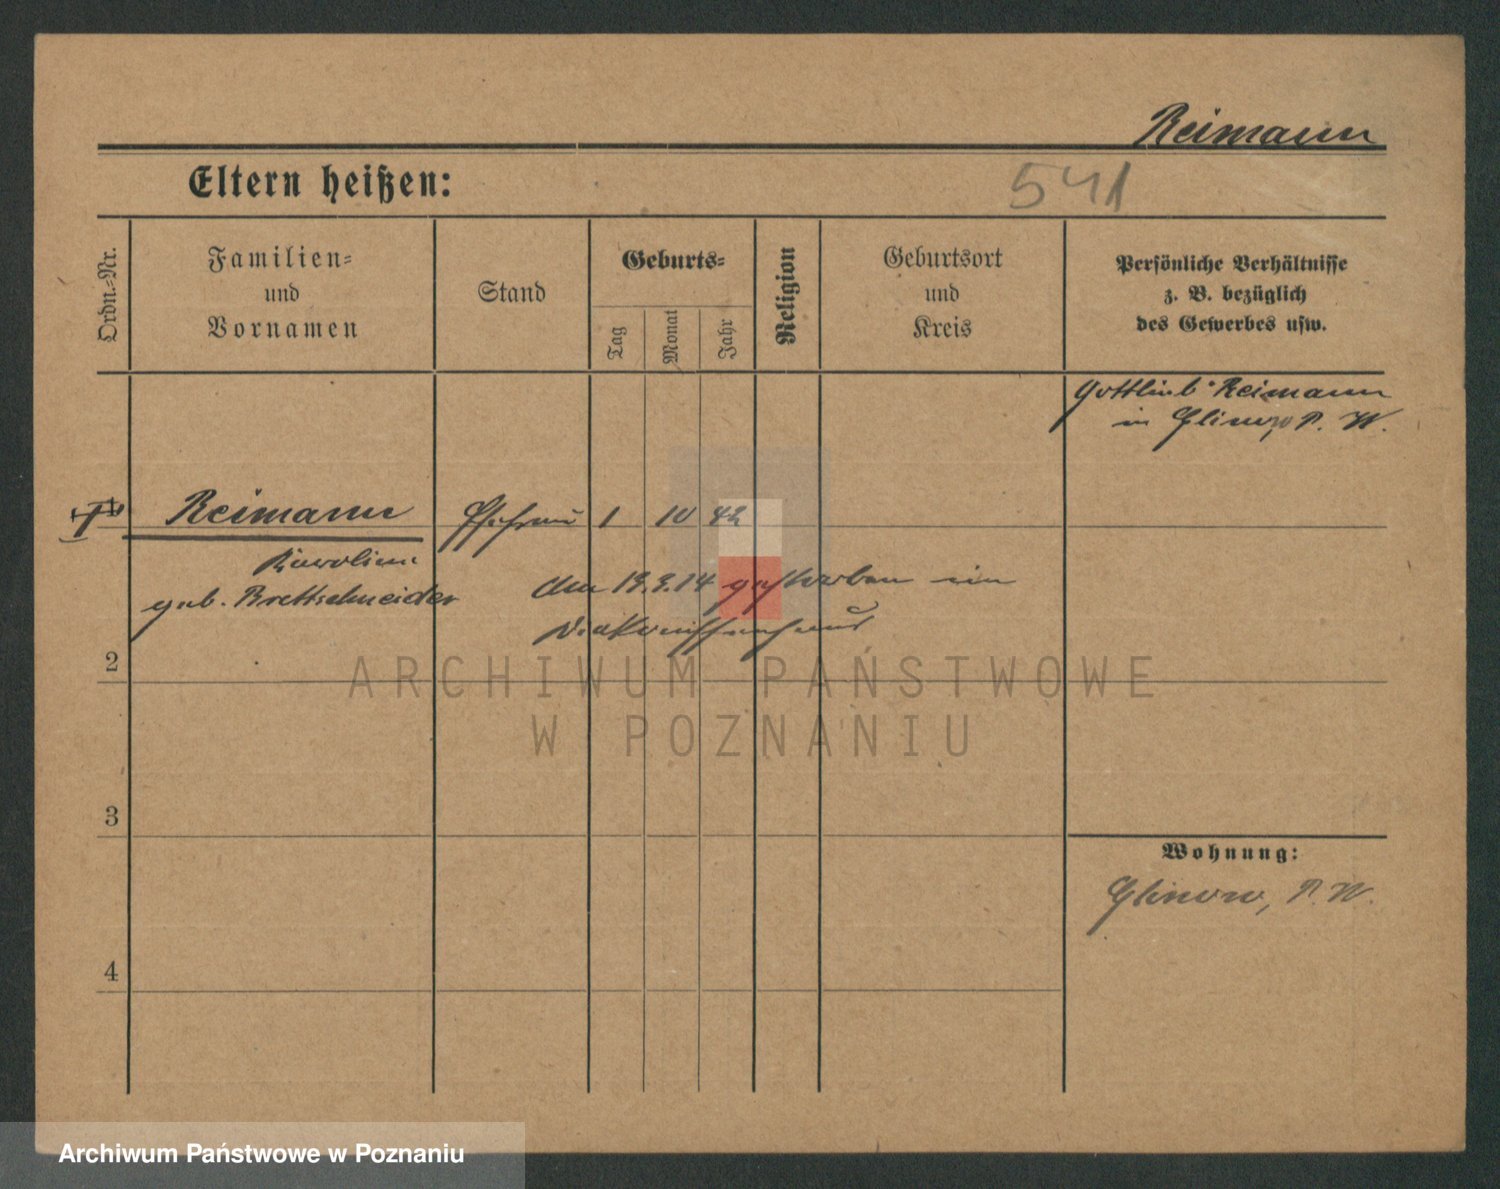 Reimann
Eltern heißen:
541
Ordn.-Nr.
Familien-
und
Vornamen
Stand
Geburts-
Tag
Monat
Jahr
Religion
Geburtsort
und
Kreis
Persönliche Verhältnisse
z. B. bezüglich
des Gewerbes usw.
Gottlieb Reimann
in Glinow P. W.
Reimann
Ehefrau 1 10 42
Karoline
geb. Brettschneider
Am 19.3.14 gestorben im
Diakonissenhaus
2
3
4
Wohnung:
Glinow, P. W.
ARCHIWUM PAŃSTWOWE
W POZNANIU
Archiwum Państwowe w Poznaniu